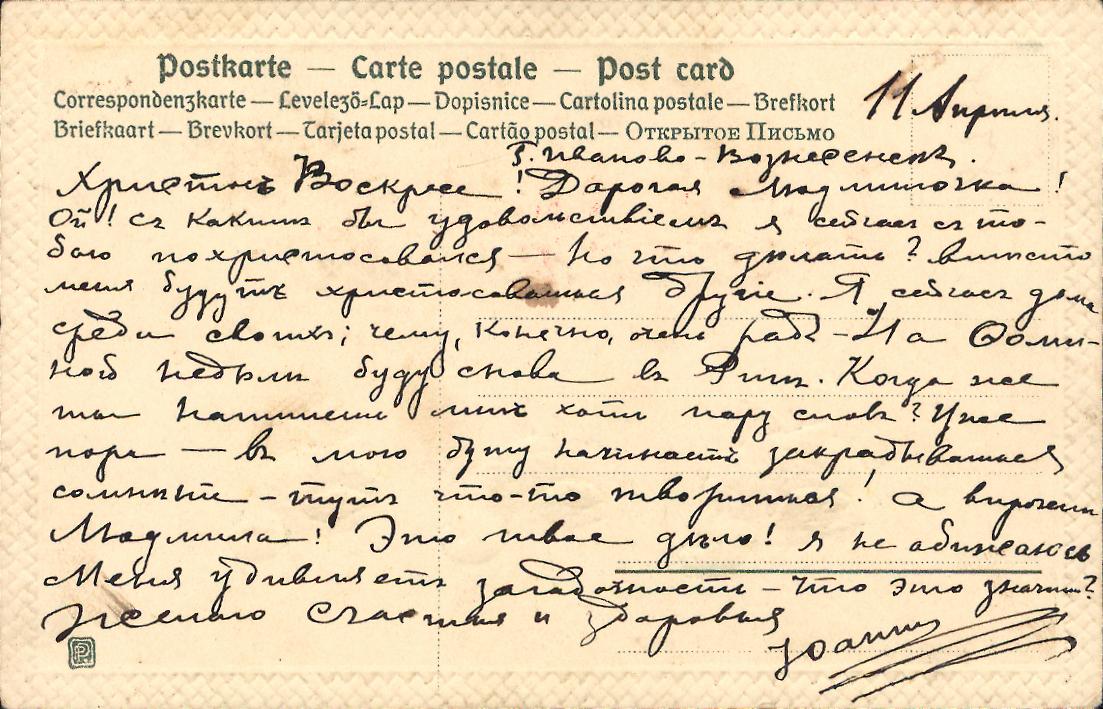 Postkarte — Carte postale — Post card
Correspondenzkarte — Levelezö-Lap — Dopisnice — Cartolina postale — Brefkort
Briefkaart — Brevkort — Tarjeta postal — Cartão postal — Открытое Письмо
11 Апреля.
Г. Иваново-Вознесенскъ.
Христосъ Воскресе! Дорогая Людмилочка!
Ой! съ какимъ бы удовольствіемъ я сейчасъ съ то-
бою похристосовался — но что дѣлать? вмѣсто
меня будутъ христосоваться другіе. Я сейчасъ дома
среди своихъ; чему, конечно, очень радъ — На Ѳоми-
ной недѣли буду снова въ Ригѣ. Когда же
ты напишешь мнѣ хоть пару словъ? Уже
пора — въ мою душу начинаетъ закрадываться
сомнѣнье — тутъ что-то творится! а впрочемъ
Людмила! Это твое дѣло! я не обижаюсь
Меня удивляетъ загадочность — что это значитъ?
Желаю счастья и здоровья
Іоаннъ